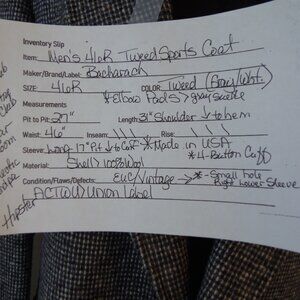 Inventory Slip
Item: Men's 41oR Tweed Sports Coat
Maker/Brand/Label: Bacharach
SIZE: 41oR COLOR: Tweed (Gray/Wht.
*Elbow Pads > gray suede
Measurements
Pit to Pit: 27" Length: 31" Shoulder ↓ to hem
Waist: 46" Inseam: Rise:
Sleeve: Long 17" Pit ↓ to Cuff *Made in USA
Material: Shell > 100% Wool *4-Button Cuff
Condition/Flaws/Defects: EUC/Vintage → * - Small hole
Right Lower Sleeve
ACTWU Union Label
Hipster